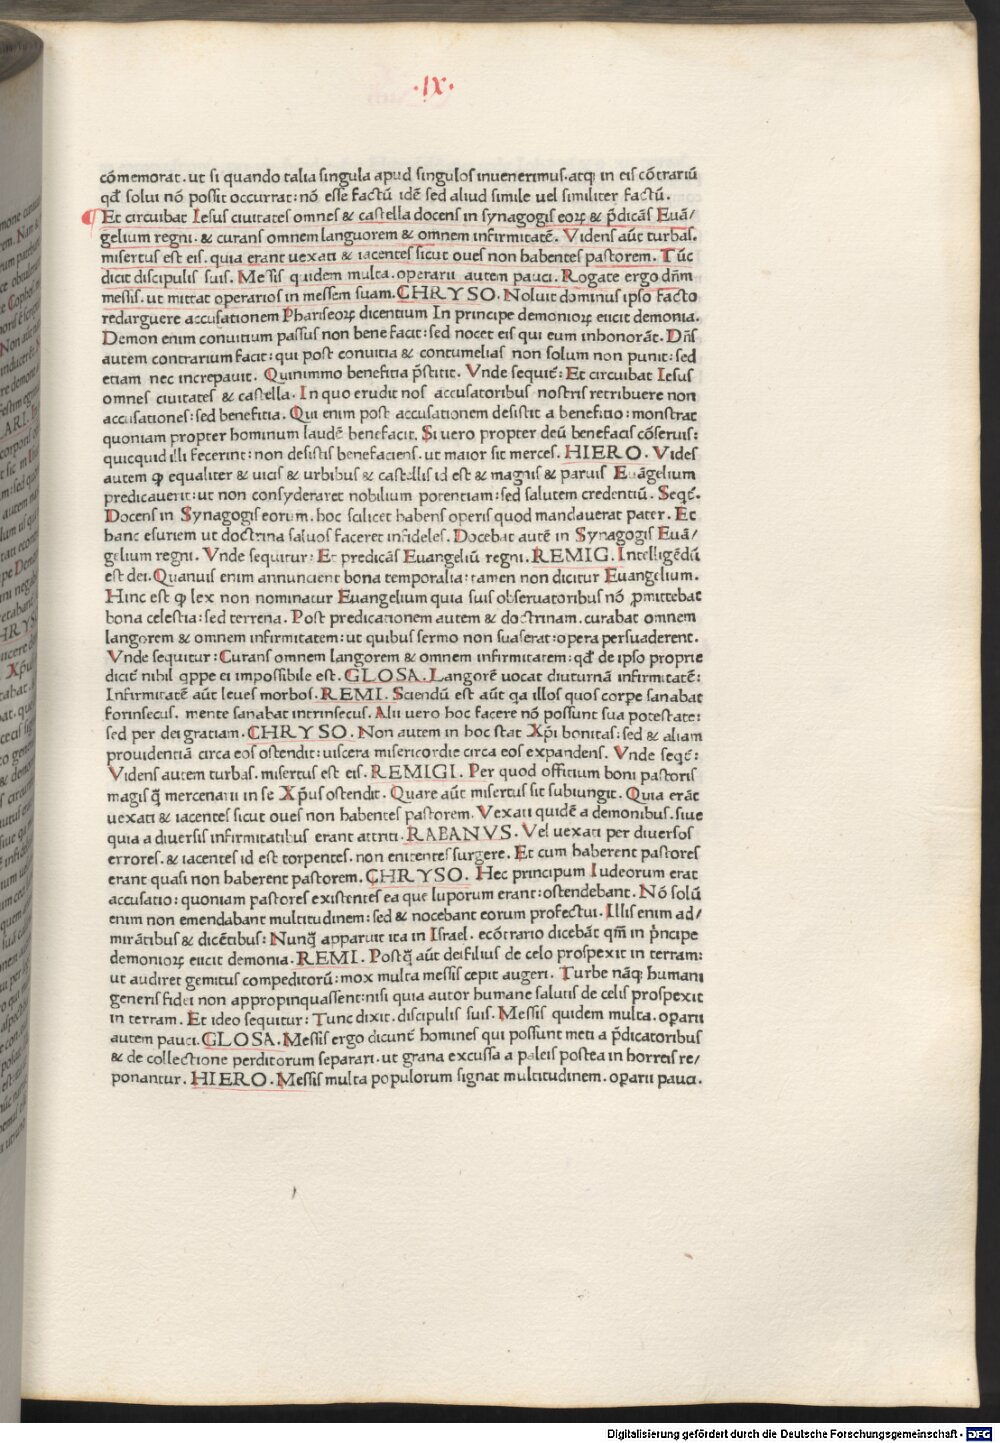 ·IX·
cōmemorat. ut si quando talia singula apud singulos inuenerimus. atq; in eis cōtrariū
qđ solui nō possit occurrat: nō esse factū idē sed aliud simile uel similiter factū.
¶ Et circuibat Iesus ciuitates omnes & castella docens in synagogis eoꝝ & p̄dicās Euā/
gelium regni. & curans omnem languorem & omnem infirmitatē. Videns aūt turbas.
misertus est eis. quia erant uexati & iacentes sicut oues non habentes pastorem. Tūc
dicit discipulis suis. Messis quidem multa. operarii autem pauci. Rogate ergo dn̄m
messis. ut mittat operarios in messem suam. CHRYSO. Noluit dominus ipso facto
redarguere accusationem Phariseoꝝ dicentium In principe demonioꝝ eiicit demonia.
Demon enim conuitium passus non bene facit: sed nocet eis qui eum inhonorāt. Dn̄s
autem contrarium facit: qui post conuitia & contumelias non solum non punit: sed
etiam nec increpauit. Quinimmo benefitia p̄stitit. Vnde sequit̄: Et circuibat Iesus
omnes ciuitates & castella. In quo erudit nos accusatoribus nostris retribuere non
accusationes: sed benefitia. Qui enim post accusationem desistit a benefitio: monstrat
quoniam propter hominum laudē benefacit. Si uero propter deū benefacis cōseruis:
quicquid illi fecerint: non desistis benefaciens. ut maior sit merces. HIERO. Vides
autem ꝙ equaliter & uicis & urbibus & castellis id est & magnis & paruis Euāgelium
predicauerit: ut non consyderaret nobilium potentiam: sed salutem credentiū. Seqt̄.
Docens in Synagogis eorum. hoc scilicet habens operis quod mandauerat pater. Et
hanc esuriem ut doctrina saluos faceret infideles. Docebat autē in Synagogis Euā/
gelium regni. Vnde sequitur: Et predicās Euangeliū regni. REMIG. Intelligēdū
est dei. Quanuis enim annuncient bona temporalia: tamen non dicitur Euangelium.
Hinc est ꝙ lex non nominatur Euangelium quia suis obseruatoribus nō ꝓmittebat
bona celestia: sed terrena. Post predicationem autem & doctrinam. curabat omnem
langorem & omnem infirmitatem: ut quibus sermo non suaserat: opera persuaderent.
Vnde sequitur: Curans omnem langorem & omnem infirmitatem: qđ de ipso proprie
dicit̄ nihil qppe ei impossibile est. GLOSA. Langorē uocat diuturnā infirmitatē:
Infirmitatē aūt leues morbos. REMI. Sciendū est aūt qa illos quos corpe sanabat
forinsecus. mente sanabat intrinsecus. Alii uero hoc facere nō possunt sua potestate:
sed per dei gratiam. CHRYSO. Non autem in hoc stat Xp̄i bonitas: sed & aliam
prouidentiā circa eos ostendit: uiscera misericordie circa eos expandens. Vnde seqt̄:
Videns autem turbas. misertus est eis. REMIGI. Per quod offitium boni pastoris
magis q̄ mercenarii in se Xp̄us ostendit. Quare aūt misertus sit subiungit. Quia erāt
uexati & iacentes sicut oues non habentes pastorem. Vexati quidē a demonibus. siue
quia a diuersis infirmitatibus erant attriti. RABANVS. Vel uexati per diuersos
errores. & iacentes id est torpentes. non enitentes surgere. Et cum haberent pastores
erant quasi non haberent pastorem. CHRYSO. Hec principum Iudeorum erat
accusatio: quoniam pastores existentes ea que luporum erant: ostendebant. Nō solū
enim non emendabant multitudinem: sed & nocebant eorum profectui. Illis enim ad/
mirātibus & dicētibus: Nunq̄ apparuit ita in Israel. ecōtrario dicebāt qm̄ in p̄ncipe
demonioꝝ eiicit demonia. REMI. Postq̄ aūt dei filius de celo prospexit in terram:
ut audiret gemitus compeditorū: mox multa messis cepit augeri. Turbe nāq; humani
generis fidei non appropinquassent: nisi quia autor humane salutis de celis prospexit
in terram. Et ideo sequitur: Tunc dixit. discipulis suis. Messis quidem multa. oꝑarii
autem pauci. GLOSA. Messis ergo dicunt̄ homines qui possunt meti a p̄dicatoribus
& de collectione perditorum separari. ut grana excussa a paleis postea in horreis re/
ponantur. HIERO. Messis multa populorum signat multitudinem. oꝑarii pauci.
Digitalisierung gefördert durch die Deutsche Forschungsgemeinschaft - DFG